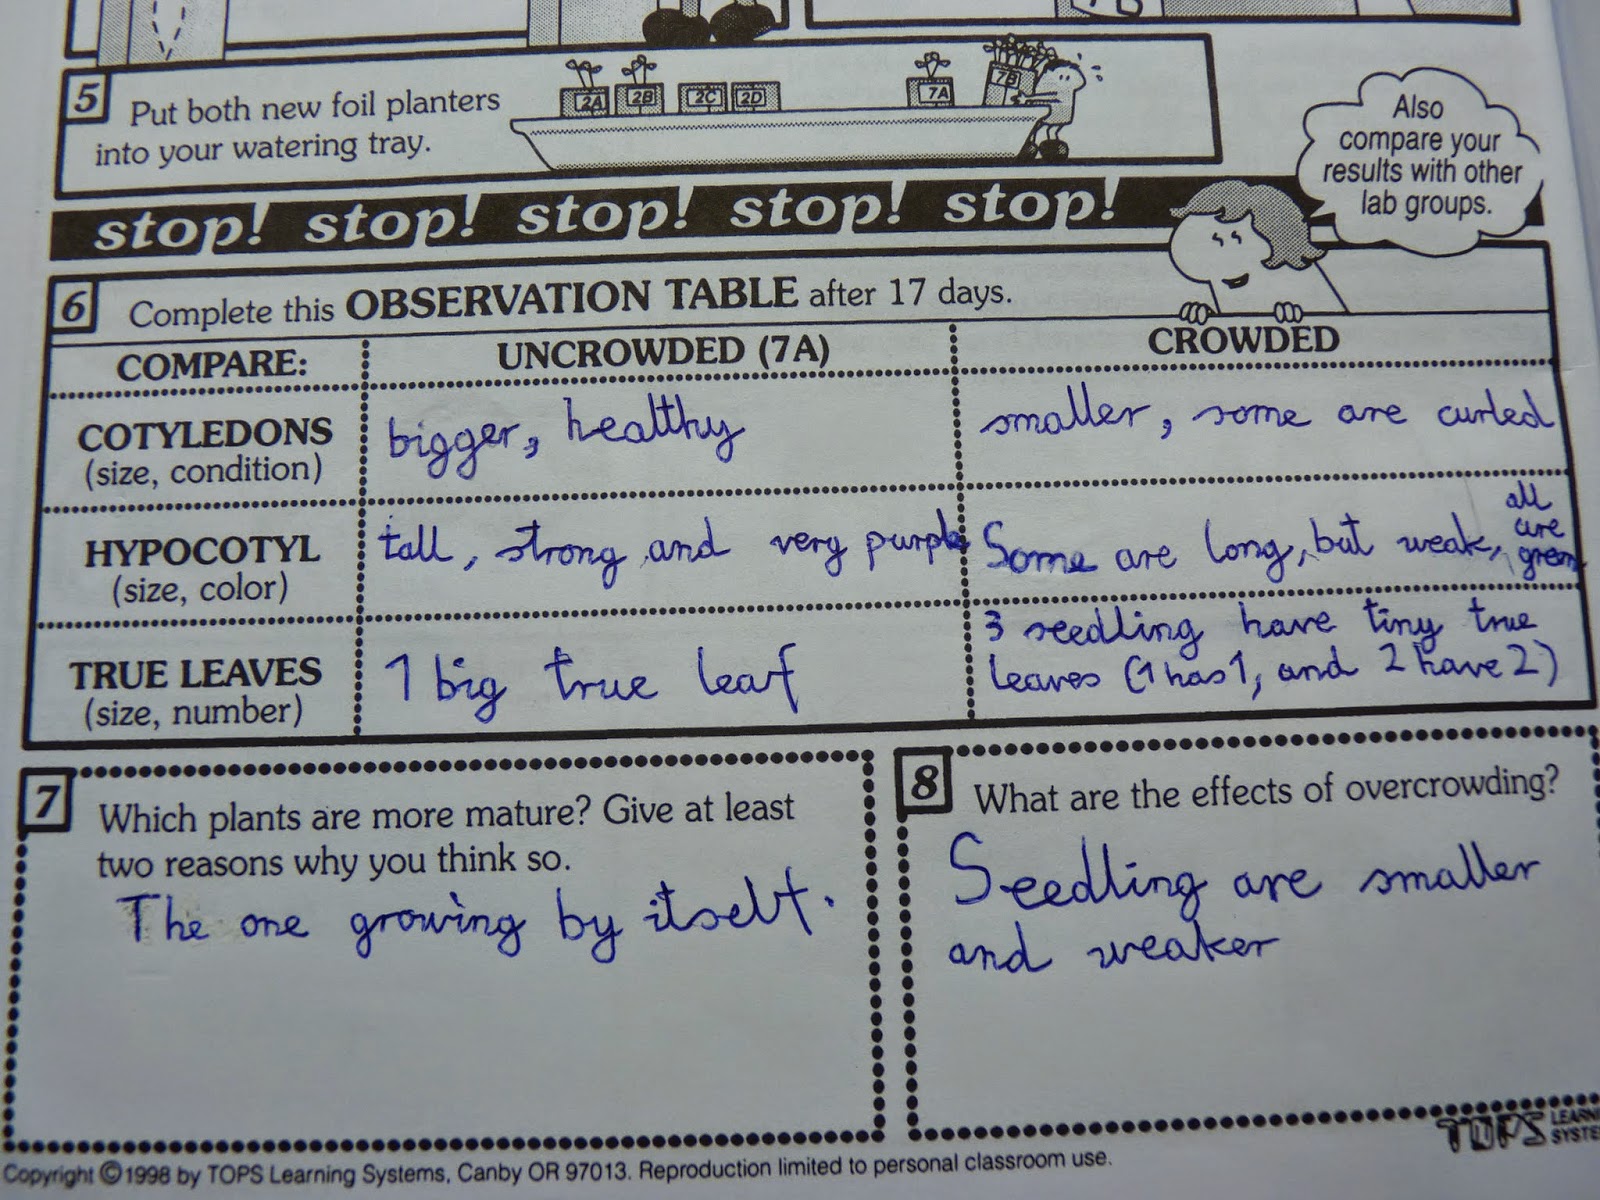 5 Put both new foil planters
into your watering tray.
2A 2B 2C 2D 7A 7B
Also
compare your
results with other
lab groups.
stop! stop! stop! stop! stop!
6 Complete this OBSERVATION TABLE after 17 days.
COMPARE: UNCROWDED (7A) CROWDED
COTYLEDONS
(size, condition)
bigger, healthy
smaller, some are curled
HYPOCOTYL
(size, color)
tall, strong and very purple
Some are long, but weak, all
are
green
TRUE LEAVES
(size, number)
1 big true leaf
3 seedling have tiny true
leaves (1 has 1, and 2 have 2)
7 Which plants are more mature? Give at least
two reasons why you think so.
The one growing by itself.
8 What are the effects of overcrowding?
Seedling are smaller
and weaker
TOPS LEARNING
SYSTEMS
Copyright ©1998 by TOPS Learning Systems, Canby OR 97013. Reproduction limited to personal classroom use.